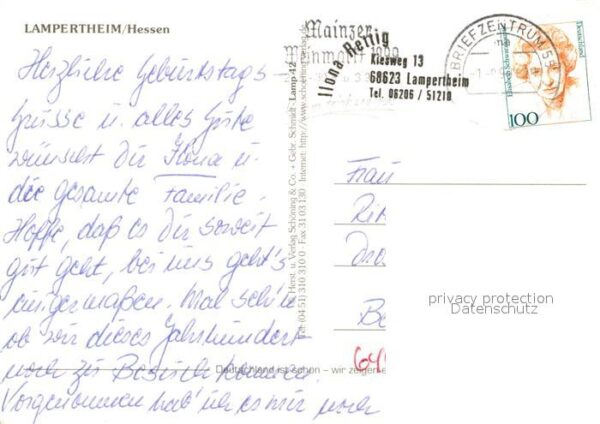 LAMPERTHEIM/Hessen
Herzliche Geburtstags
Grüsse u. alles Gute
wünscht Dir Ilona u.
die gesamte Familie.
Hoffe, daß es Dir soweit
gut geht, bei uns geht's
einigermaßen. Mal sehen
ob wir dieses Jahrhundert
noch zu Besuch kommen.
Vorgenommen hab' ich es mir noch
Horst u. Verlag Schöning & Co. + Gebr. Schmidt · Lamp 12
Tel. (04 51) 310 310 0 · Fax 31 03 130 · Internet: http://www.schoening-verlag.de
Mainzer
Ilona Rettig
Kiesweg 13
68623 Lampertheim
Tel. 06206 / 51218
BRIEFZENTRUM
Deutschland
100
Frau
Rit
Dro
Be
64
privacy protection
Datenschutz
Deutschland ist schön – wir zeigen e